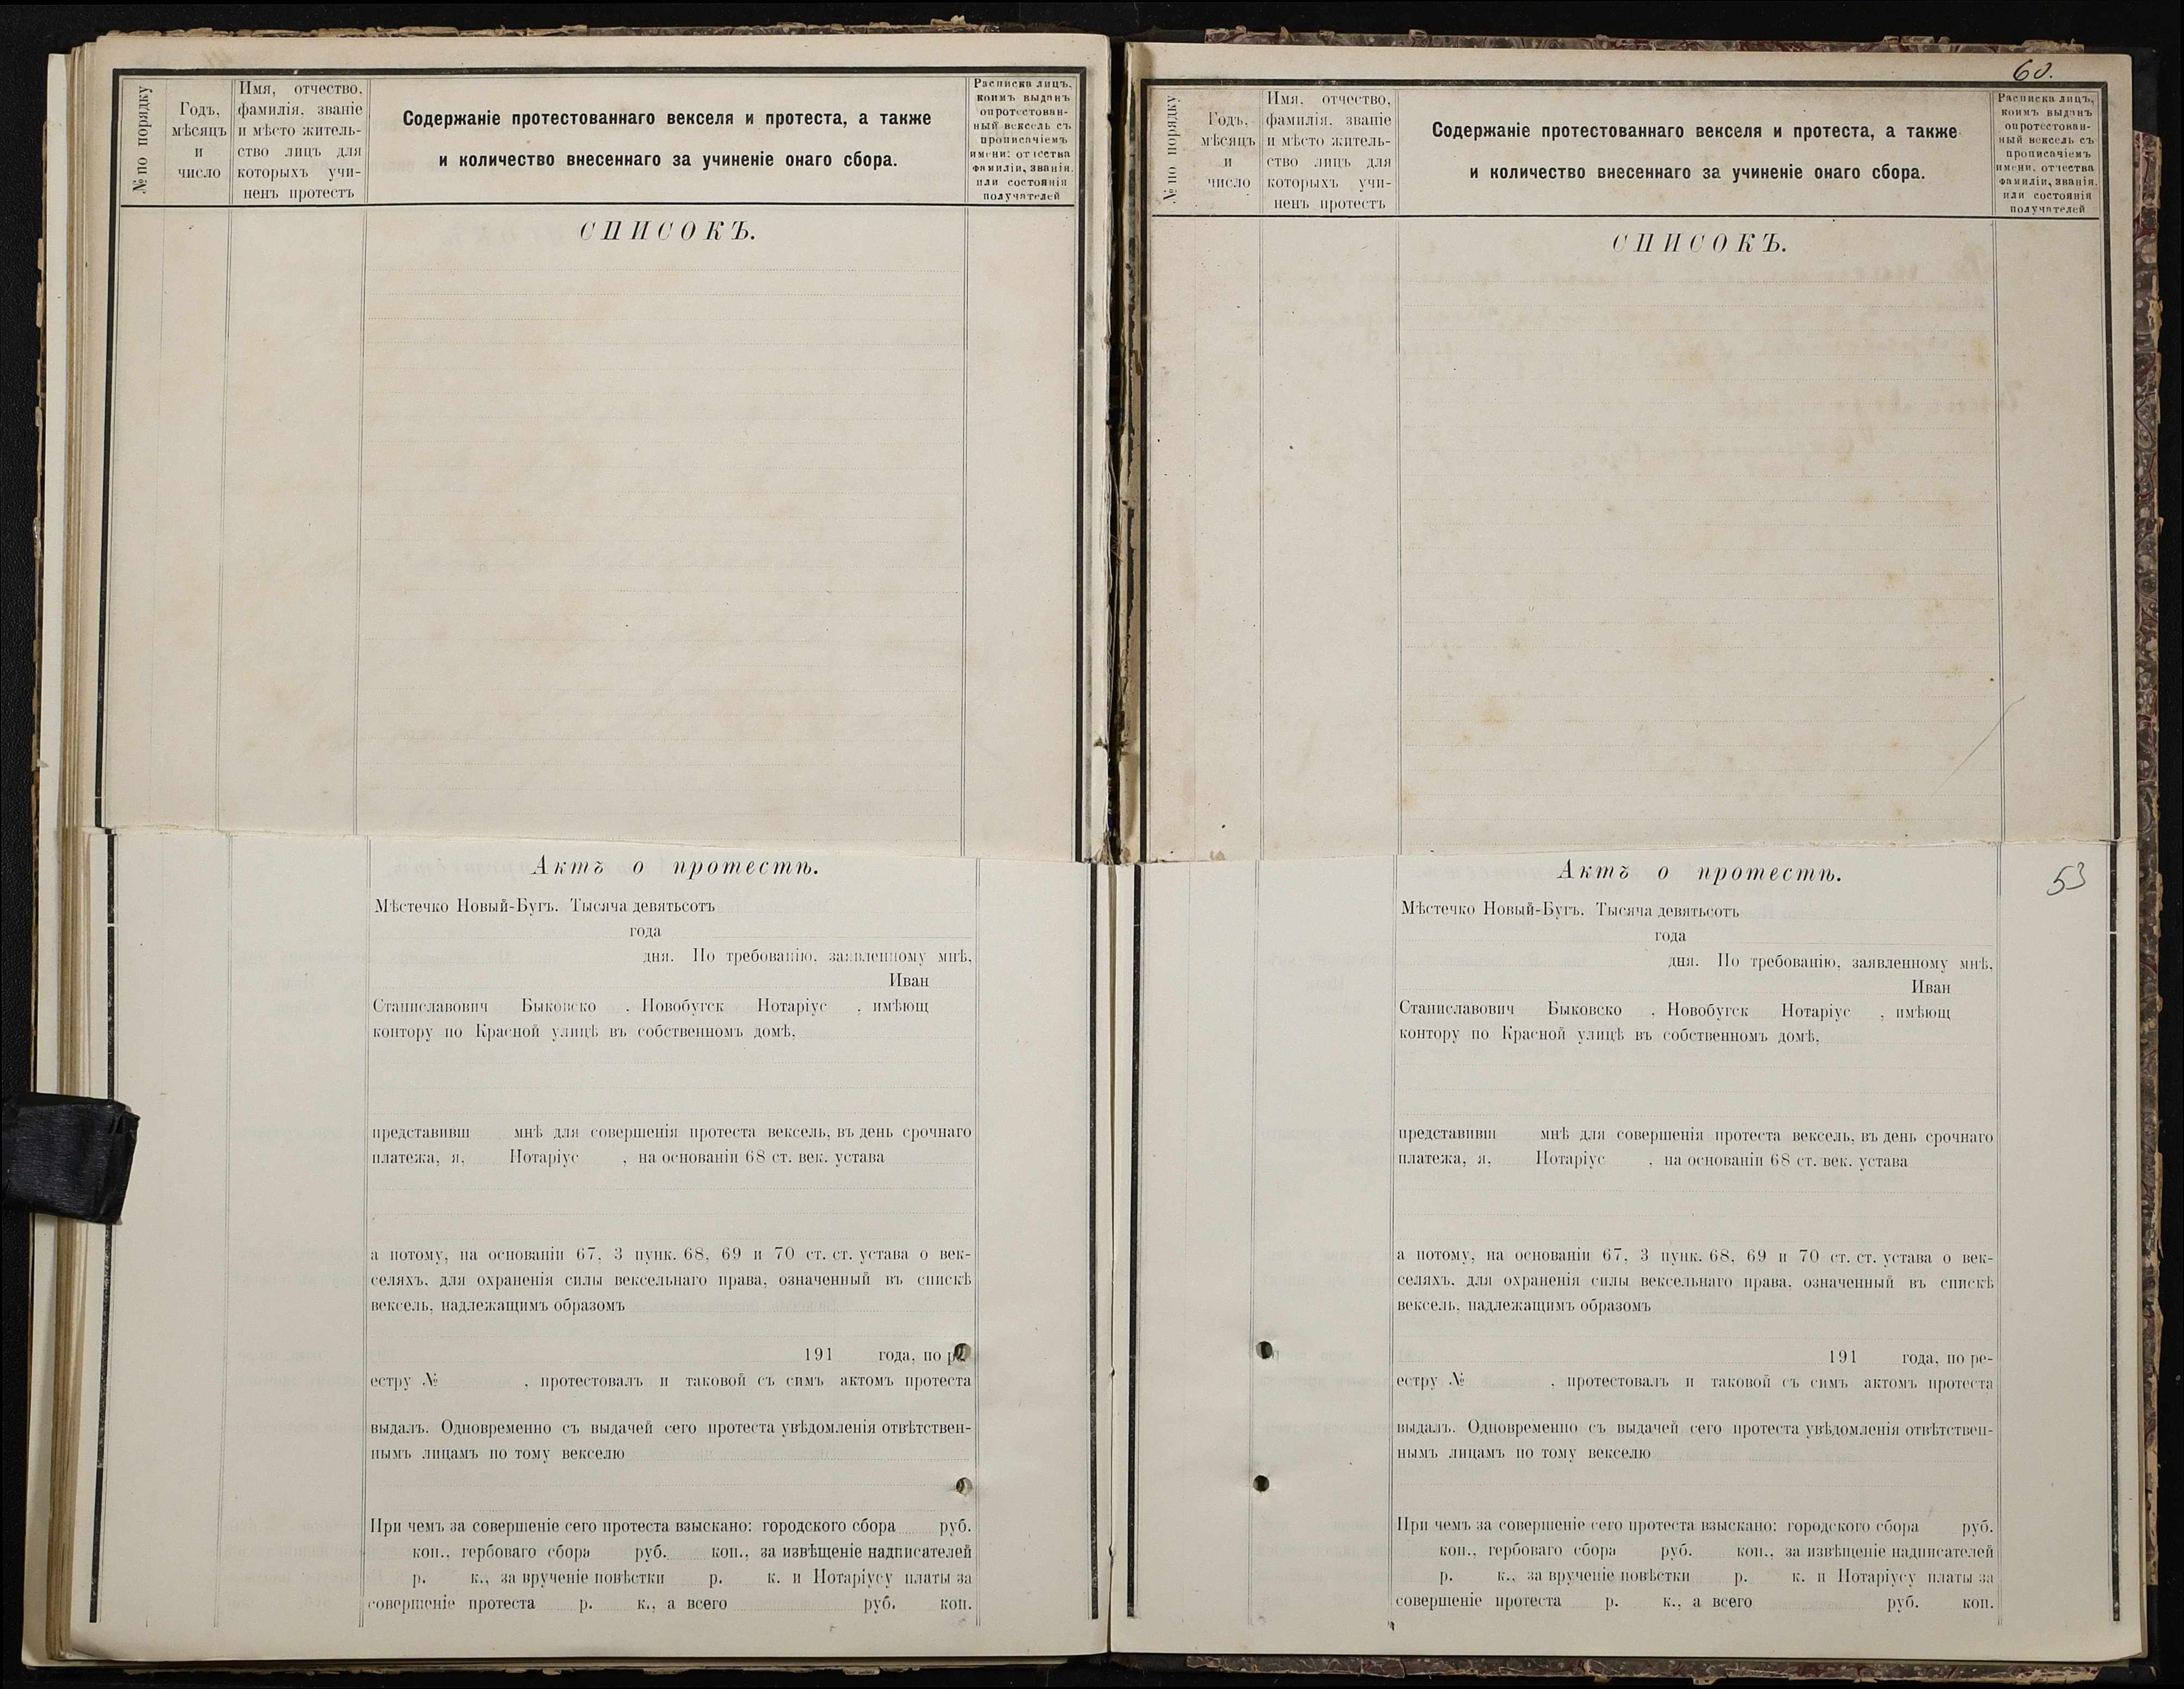 № по порядку
Годъ,
мѣсяцъ
и
число
Имя, отчество,
фамилія, званіе
и мѣсто житель-
ство лицъ для
которыхъ учи-
ненъ протестъ
Содержаніе протестованнаго векселя и протеста, а также
и количество внесеннаго за учиненіе онаго сбора.
Расписка лицъ,
коимъ выданъ
опротестован-
ный вексель съ
прописаніемъ
имени, отчества
фамиліи, званія,
или состоянія
получателей
СПИСОКЪ.
Актъ о протестѣ.
Мѣстечко Новый-Бугъ. Тысяча девятьсотъ
года
дня. По требованію, заявленному мнѣ,
Иван
Станиславович Быковско , Новобугск Нотаріус , имѣющ
контору по Красной улицѣ въ собственномъ домѣ,
представивш мнѣ для совершенія протеста вексель, въ день срочнаго
платежа, я, Нотаріус , на основаніи 68 ст. век. устава
а потому, на основаніи 67, 3 пунк. 68, 69 и 70 ст. ст. устава о век-
селяхъ, для охраненія силы вексельнаго права, означенный въ спискѣ
вексель, надлежащимъ образомъ
191 года, по ре-
естру № , протестовалъ и таковой съ симъ актомъ протеста
выдалъ. Одновременно съ выдачей сего протеста увѣдомленія отвѣтствен-
нымъ лицамъ по тому векселю
При чемъ за совершеніе сего протеста взыскано: городского сбора руб.
коп., гербоваго сбора руб. коп., за извѣщеніе надписателей
р. к., за врученіе повѣстки р. к. и Нотаріусу платы за
совершеніе протеста р. к., а всего руб. коп.
60.
№ по порядку
Годъ,
мѣсяцъ
и
число
Имя, отчество,
фамилія, званіе
и мѣсто житель-
ство лицъ для
которыхъ учи-
ненъ протестъ
Содержаніе протестованнаго векселя и протеста, а также
и количество внесеннаго за учиненіе онаго сбора.
Расписка лицъ,
коимъ выданъ
опротестован-
ный вексель съ
прописаніемъ
имени, отчества
фамиліи, званія,
или состоянія
получателей
СПИСОКЪ.
Актъ о протестѣ.
53
Мѣстечко Новый-Бугъ. Тысяча девятьсотъ
года
дня. По требованію, заявленному мнѣ,
Иван
Станиславович Быковско , Новобугск Нотаріус , имѣющ
контору по Красной улицѣ въ собственномъ домѣ,
представивш мнѣ для совершенія протеста вексель, въ день срочнаго
платежа, я, Нотаріус , на основаніи 68 ст. век. устава
а потому, на основаніи 67, 3 пунк. 68, 69 и 70 ст. ст. устава о век-
селяхъ, для охраненія силы вексельнаго права, означенный въ спискѣ
вексель, надлежащимъ образомъ
191 года, по ре-
естру № , протестовалъ и таковой съ симъ актомъ протеста
выдалъ. Одновременно съ выдачей сего протеста увѣдомленія отвѣтствен-
нымъ лицамъ по тому векселю
При чемъ за совершеніе сего протеста взыскано: городского сбора руб.
коп., гербоваго сбора руб. коп., за извѣщеніе надписателей
р. к., за врученіе повѣстки р. к. и Нотаріусу платы за
совершеніе протеста р. к., а всего руб. коп.